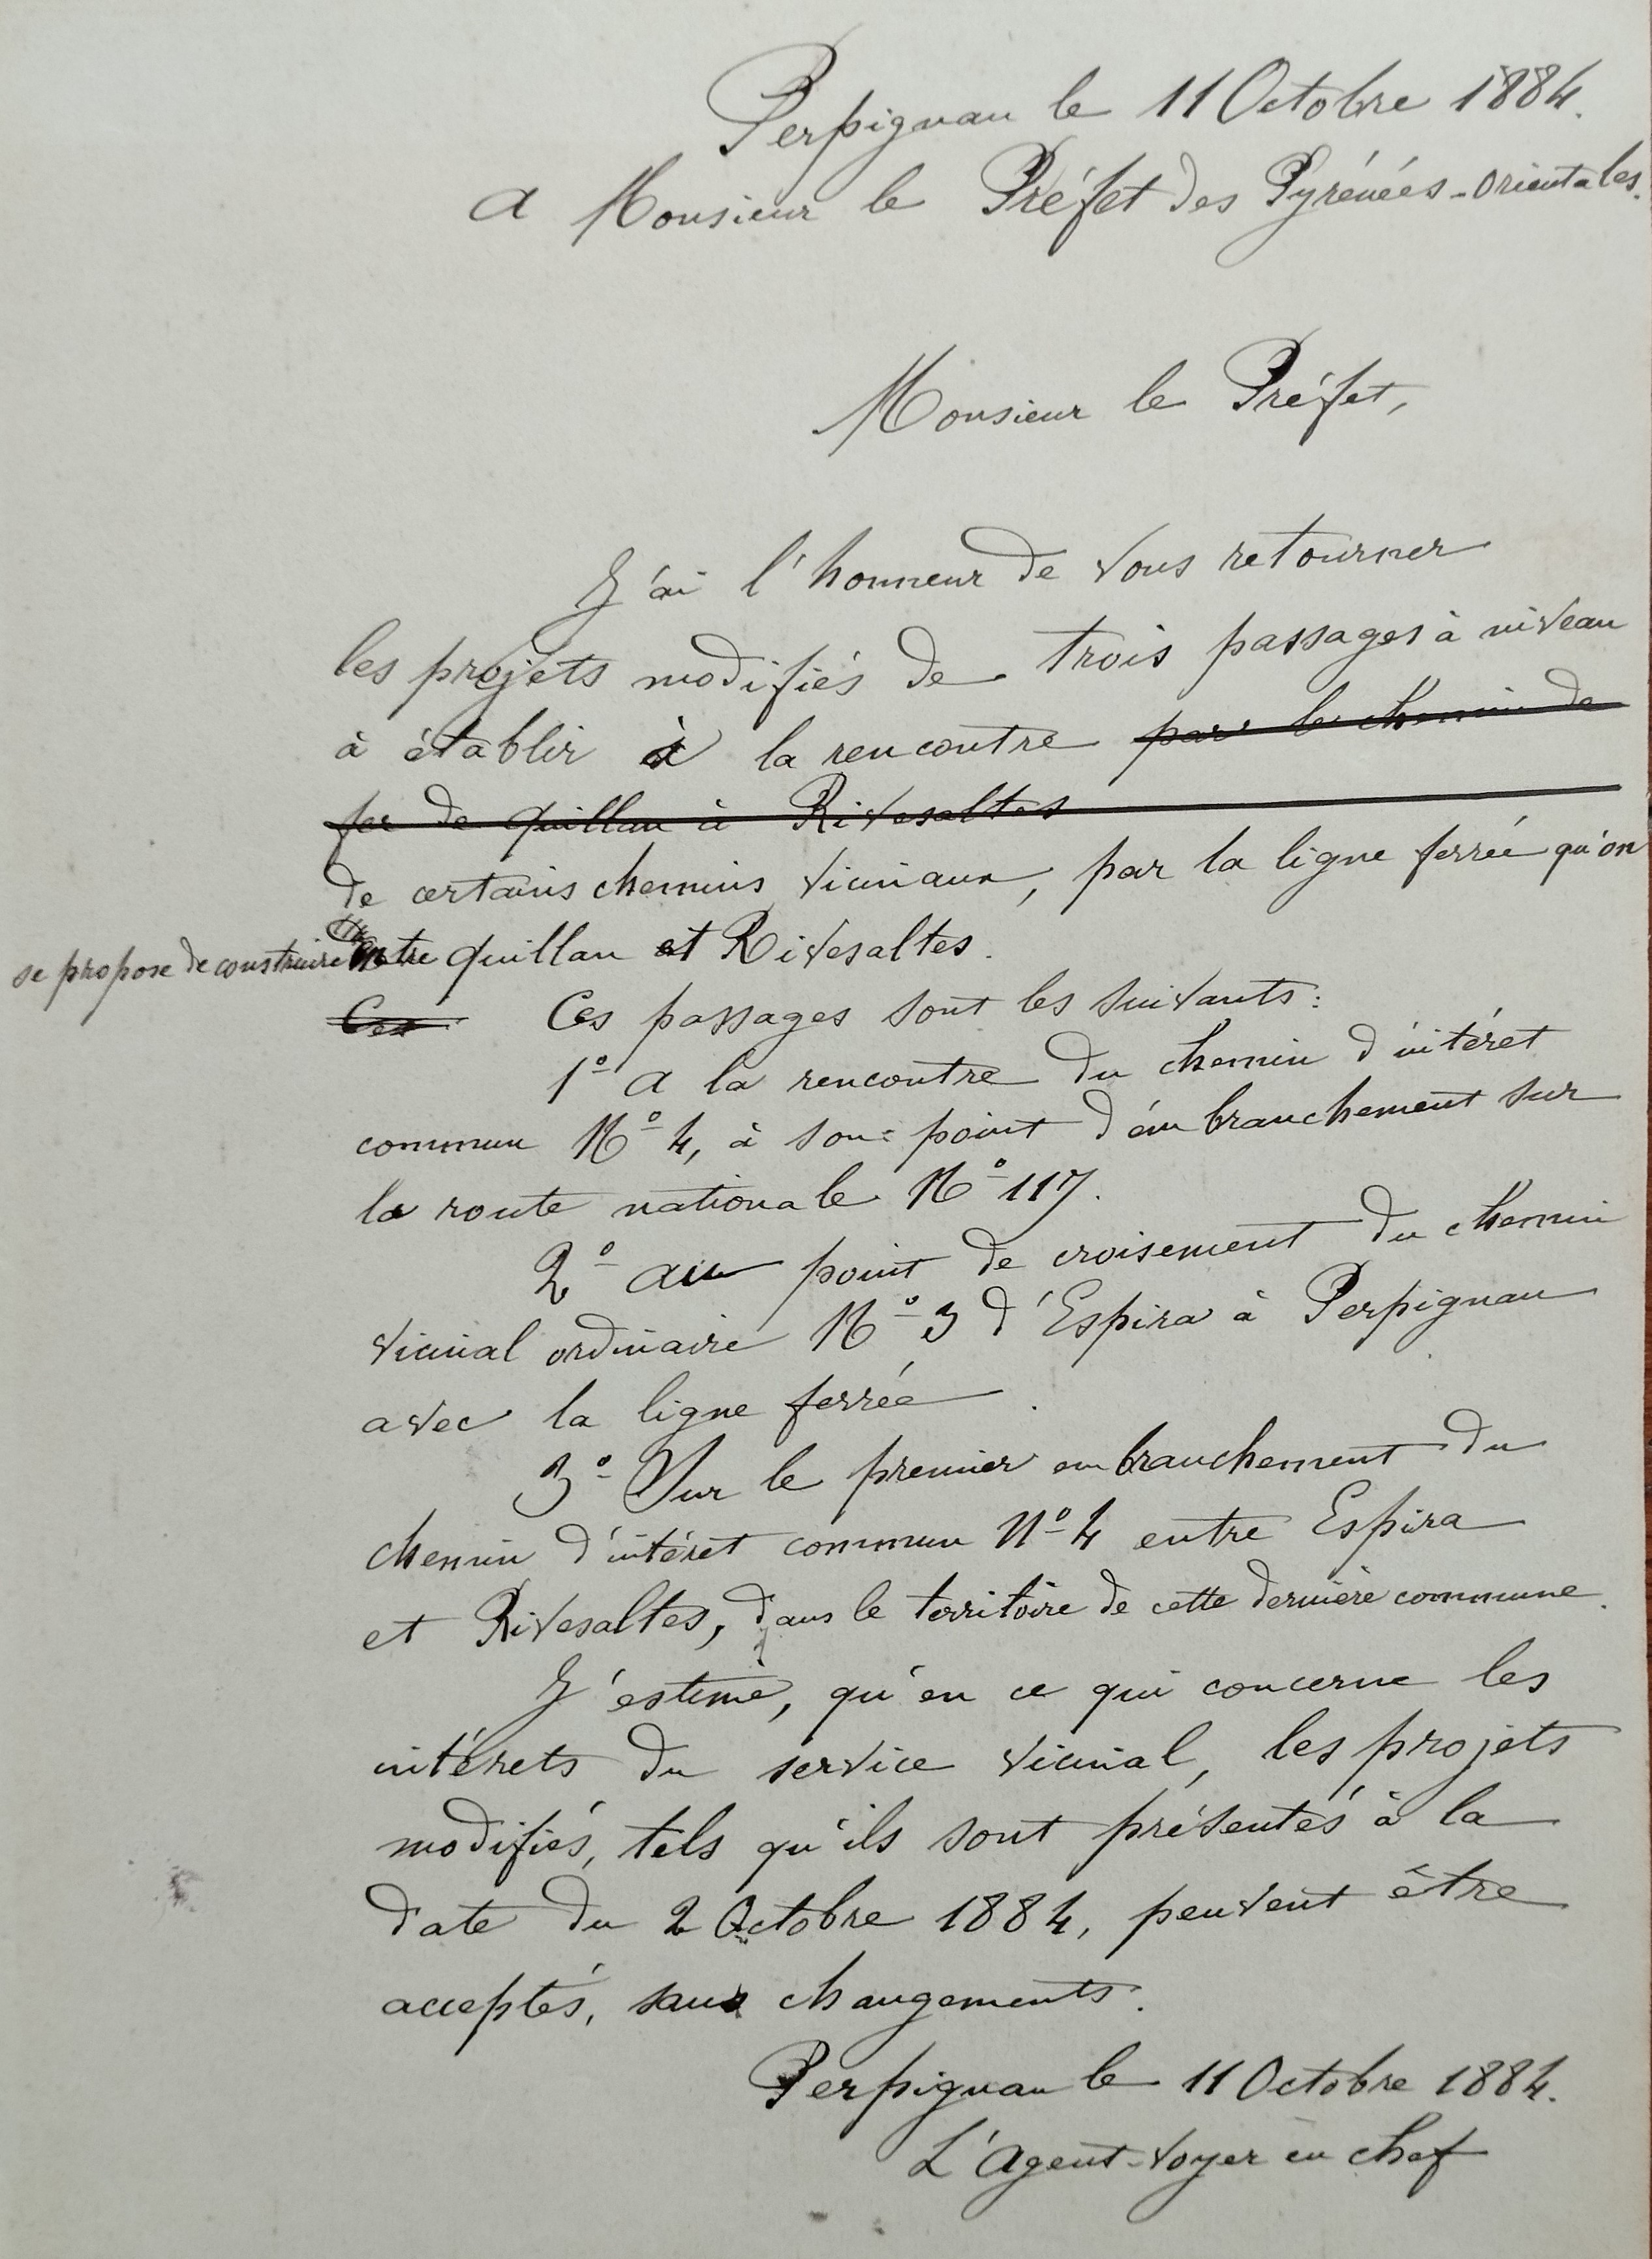 Perpignan le 11 Octobre 1884.
A Monsieur le Préfet des Pyrénées-Orientales.
Monsieur le Préfet,
J'ai l'honneur de vous retourner
les projets modifiés de trois passages à niveau
à établir à la rencontre par le chemin de
fer de Quillan à Rivesaltes
de certains chemins vicinaux, par la ligne ferrée qu'on
se propose de construire entre Quillan et Rivesaltes.
Ces Ces passages sont les suivants :
1º A la rencontre du chemin d'intéret
commun Nº 4, à son point d'embranchement sur
la route nationale Nº 117.
2º au point de croisement du chemin
vicinal ordinaire Nº 3 d'Espira à Perpignan
avec la ligne ferrée.
3º Sur le premier embranchement du
chemin d'intéret commun Nº 4 entre Espira
et Rivesaltes, dans le territoire de cette dernière commune.
J'estime, qu'en ce qui concerne les
intérets du service vicinal, les projets
modifiés, tels qu'ils sont présentés à la
date du 2 Octobre 1884, peuvent être
acceptés, sans changements.
Perpignan le 11 Octobre 1884.
L'Agent-Voyer en chef